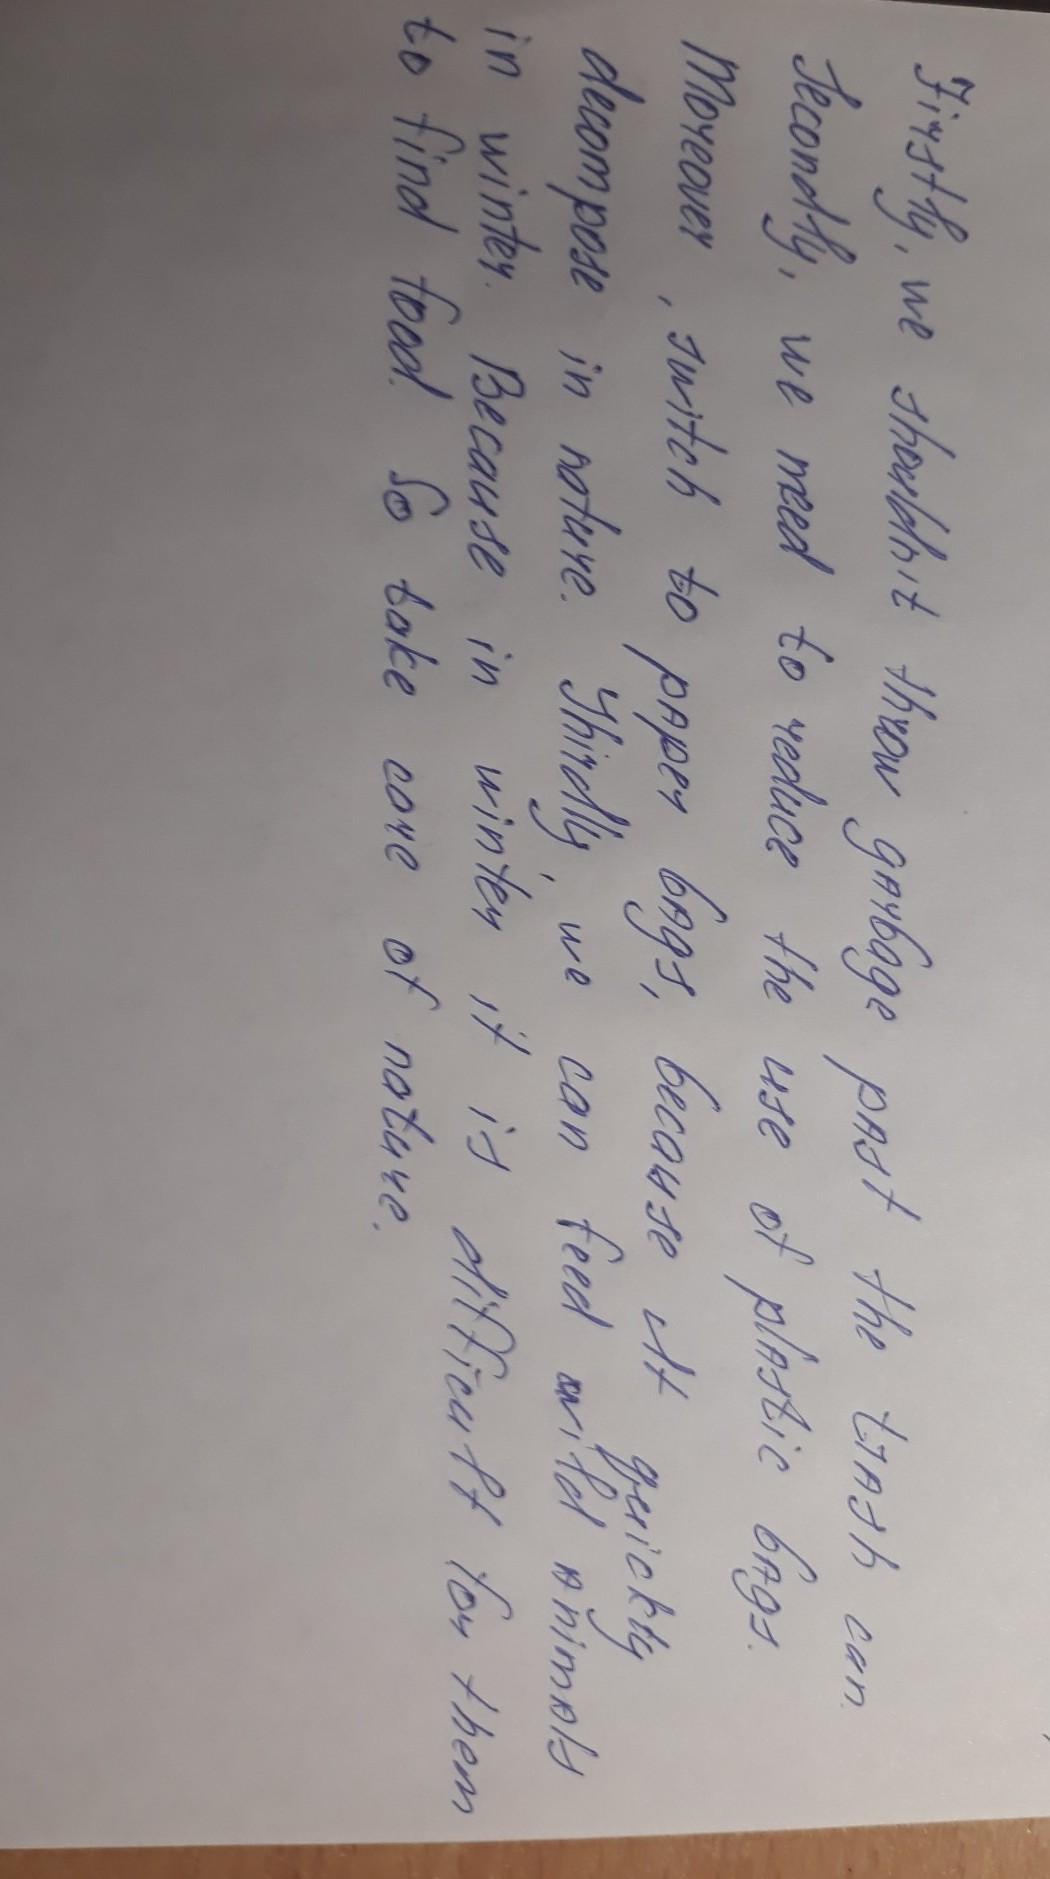 Firstly, we shouldn't throw garbage past the trash can.
Secondly, we need to reduce the use of plastic bags.
Moreover, switch to paper bags, because it quickly
decompose in nature. Thirdly, we can feed wild animals
in winter. Because in winter it is difficult for them
to find food. So take care of nature.